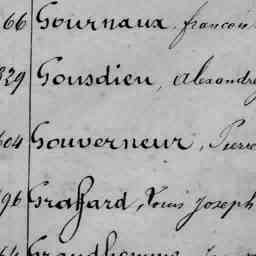 66 Gournaux, françois
829 Gousdieu, Alexandre
604 Gouverneur, Pierre
96 Graffard, Louis Joseph
64 Grandhomme,